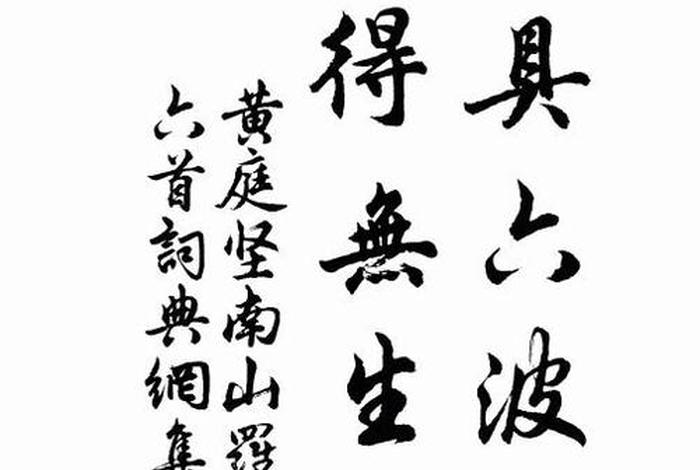 具六波
得無生
黄庭坚南山羅
六首詞典網集